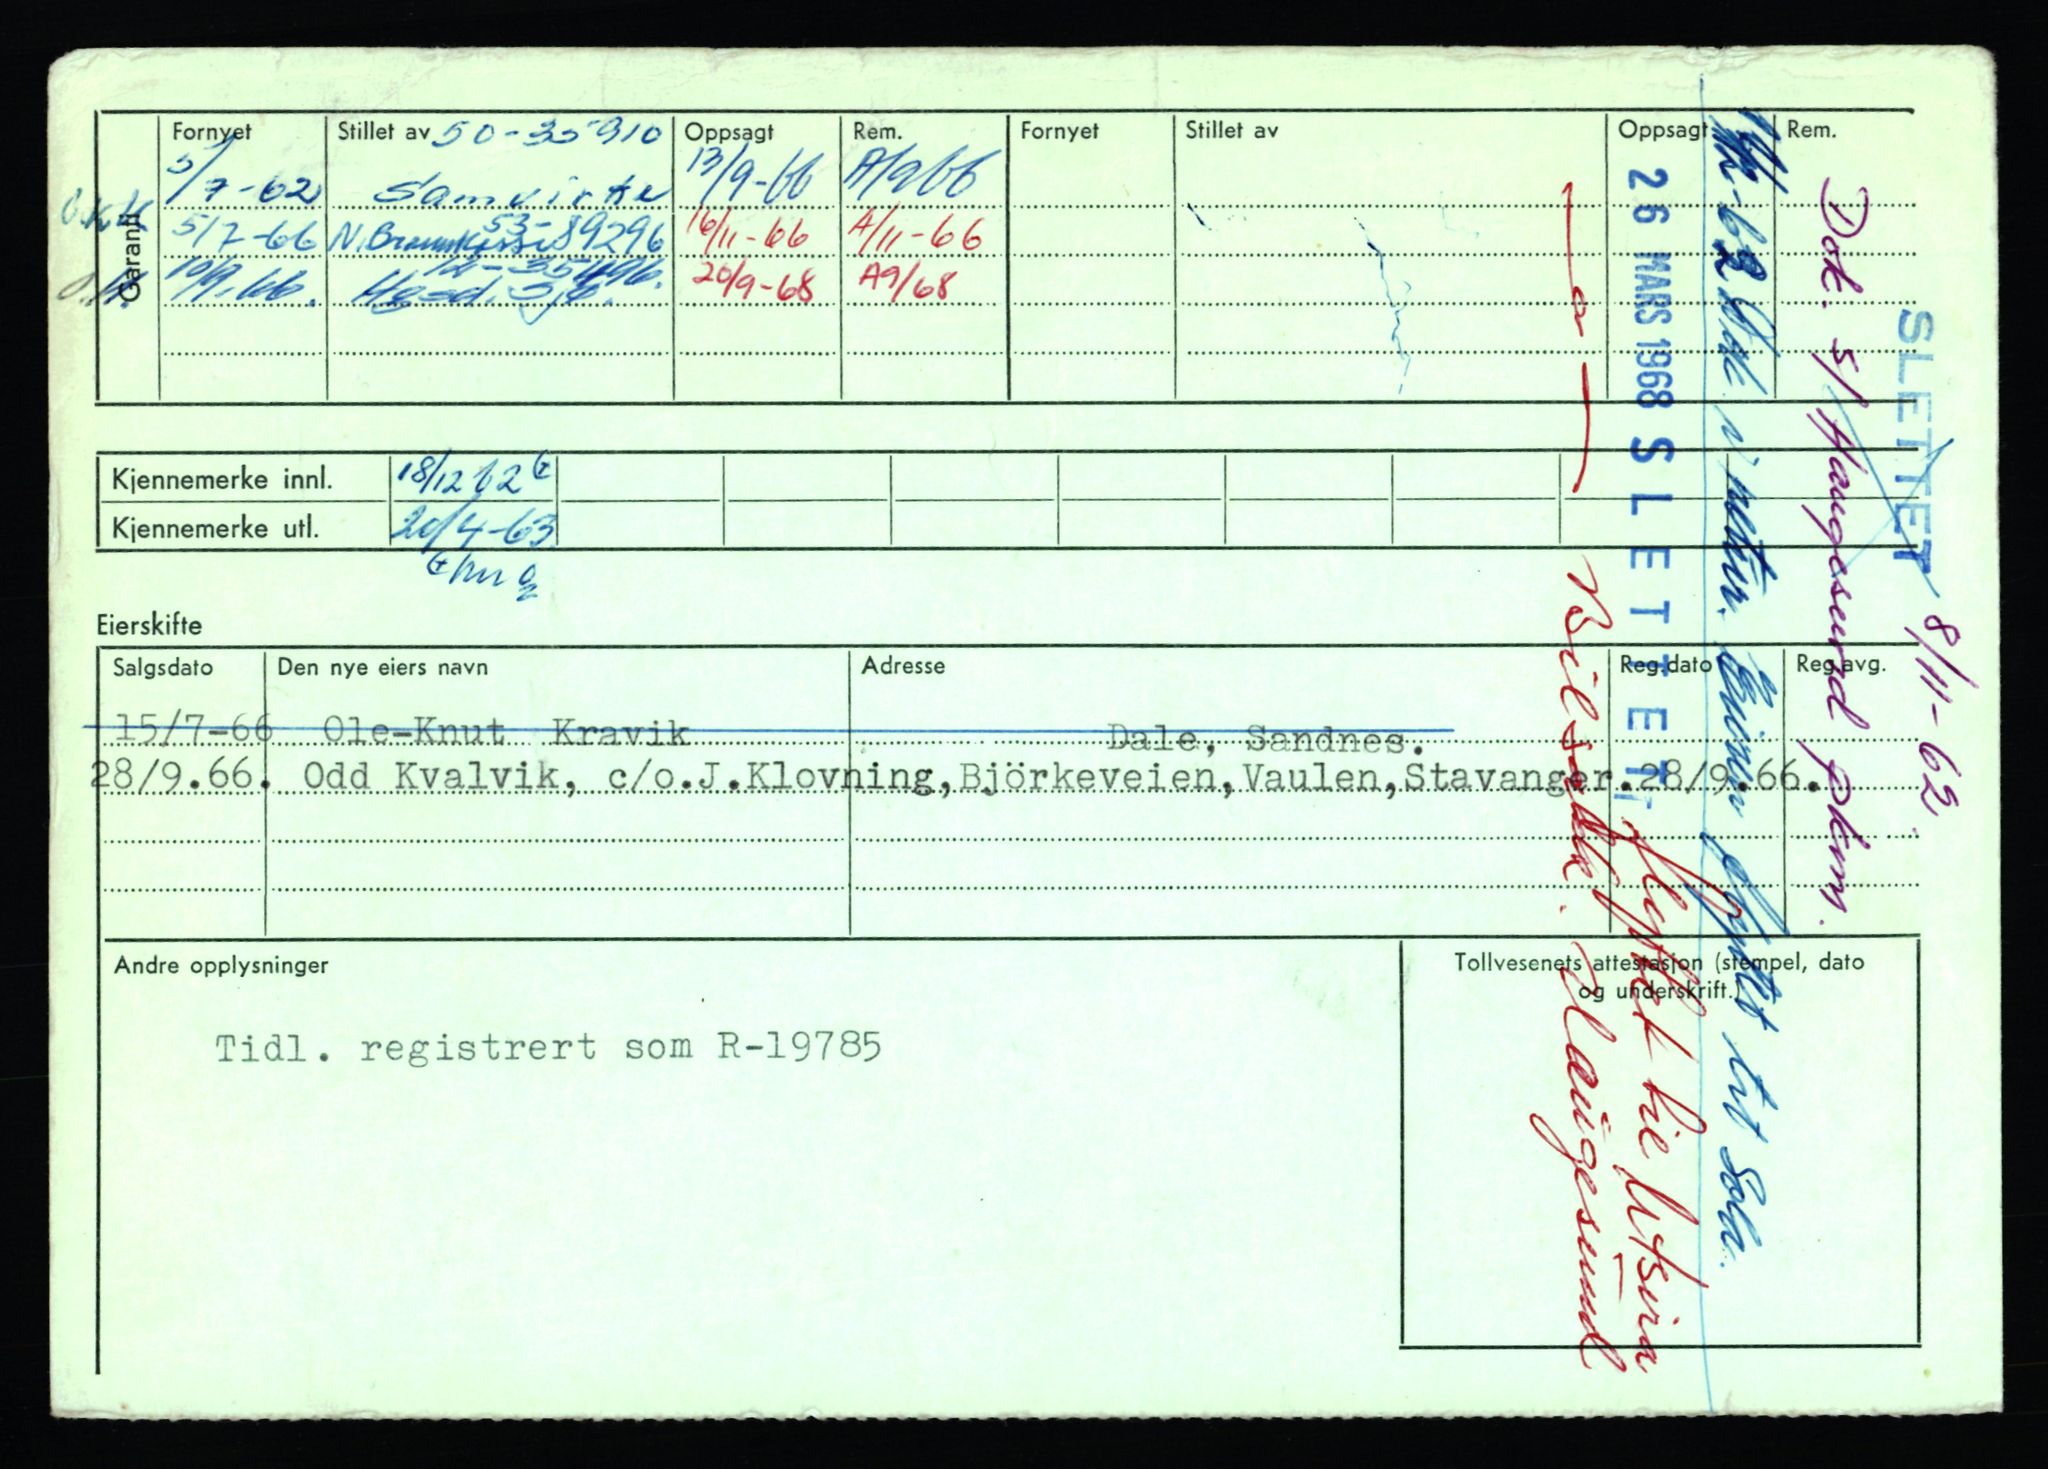 Garanti
Fornyet Stillet av 50-35910 Oppsagt Rem. Fornyet Stillet av Oppsagt Rem.
5/7-62 Samvirke 13/9-66 A/9 66
5/7-66 53-89296 16/11-66 A/11-66
10/9.66. 20/9-68 A9/68
Kjennemerke innl. 18/12 62
Kjennemerke utl. 20/4-63
Eierskifte
Salgsdato Den nye eiers navn Adresse Reg.dato Reg.avg.
15/7-66 Ole-Knut Kravik Dale, Sandnes.
28/9.66. Odd Kvalvik, c/o.J.Klovning,Björkeveien,Vaulen,Stavanger.28/9.66.
Andre opplysninger
Tollvesenets attestasjon (stempel, dato
og underskrift.)
Tidl. registrert som R-19785
SLETTET
8/11-62.
Dok. s/Haugesund
Eieren flyttet til Sola.
26 MARS 1968 SLETTET
flyttet til Utsira
Bilsakk. Haugesund